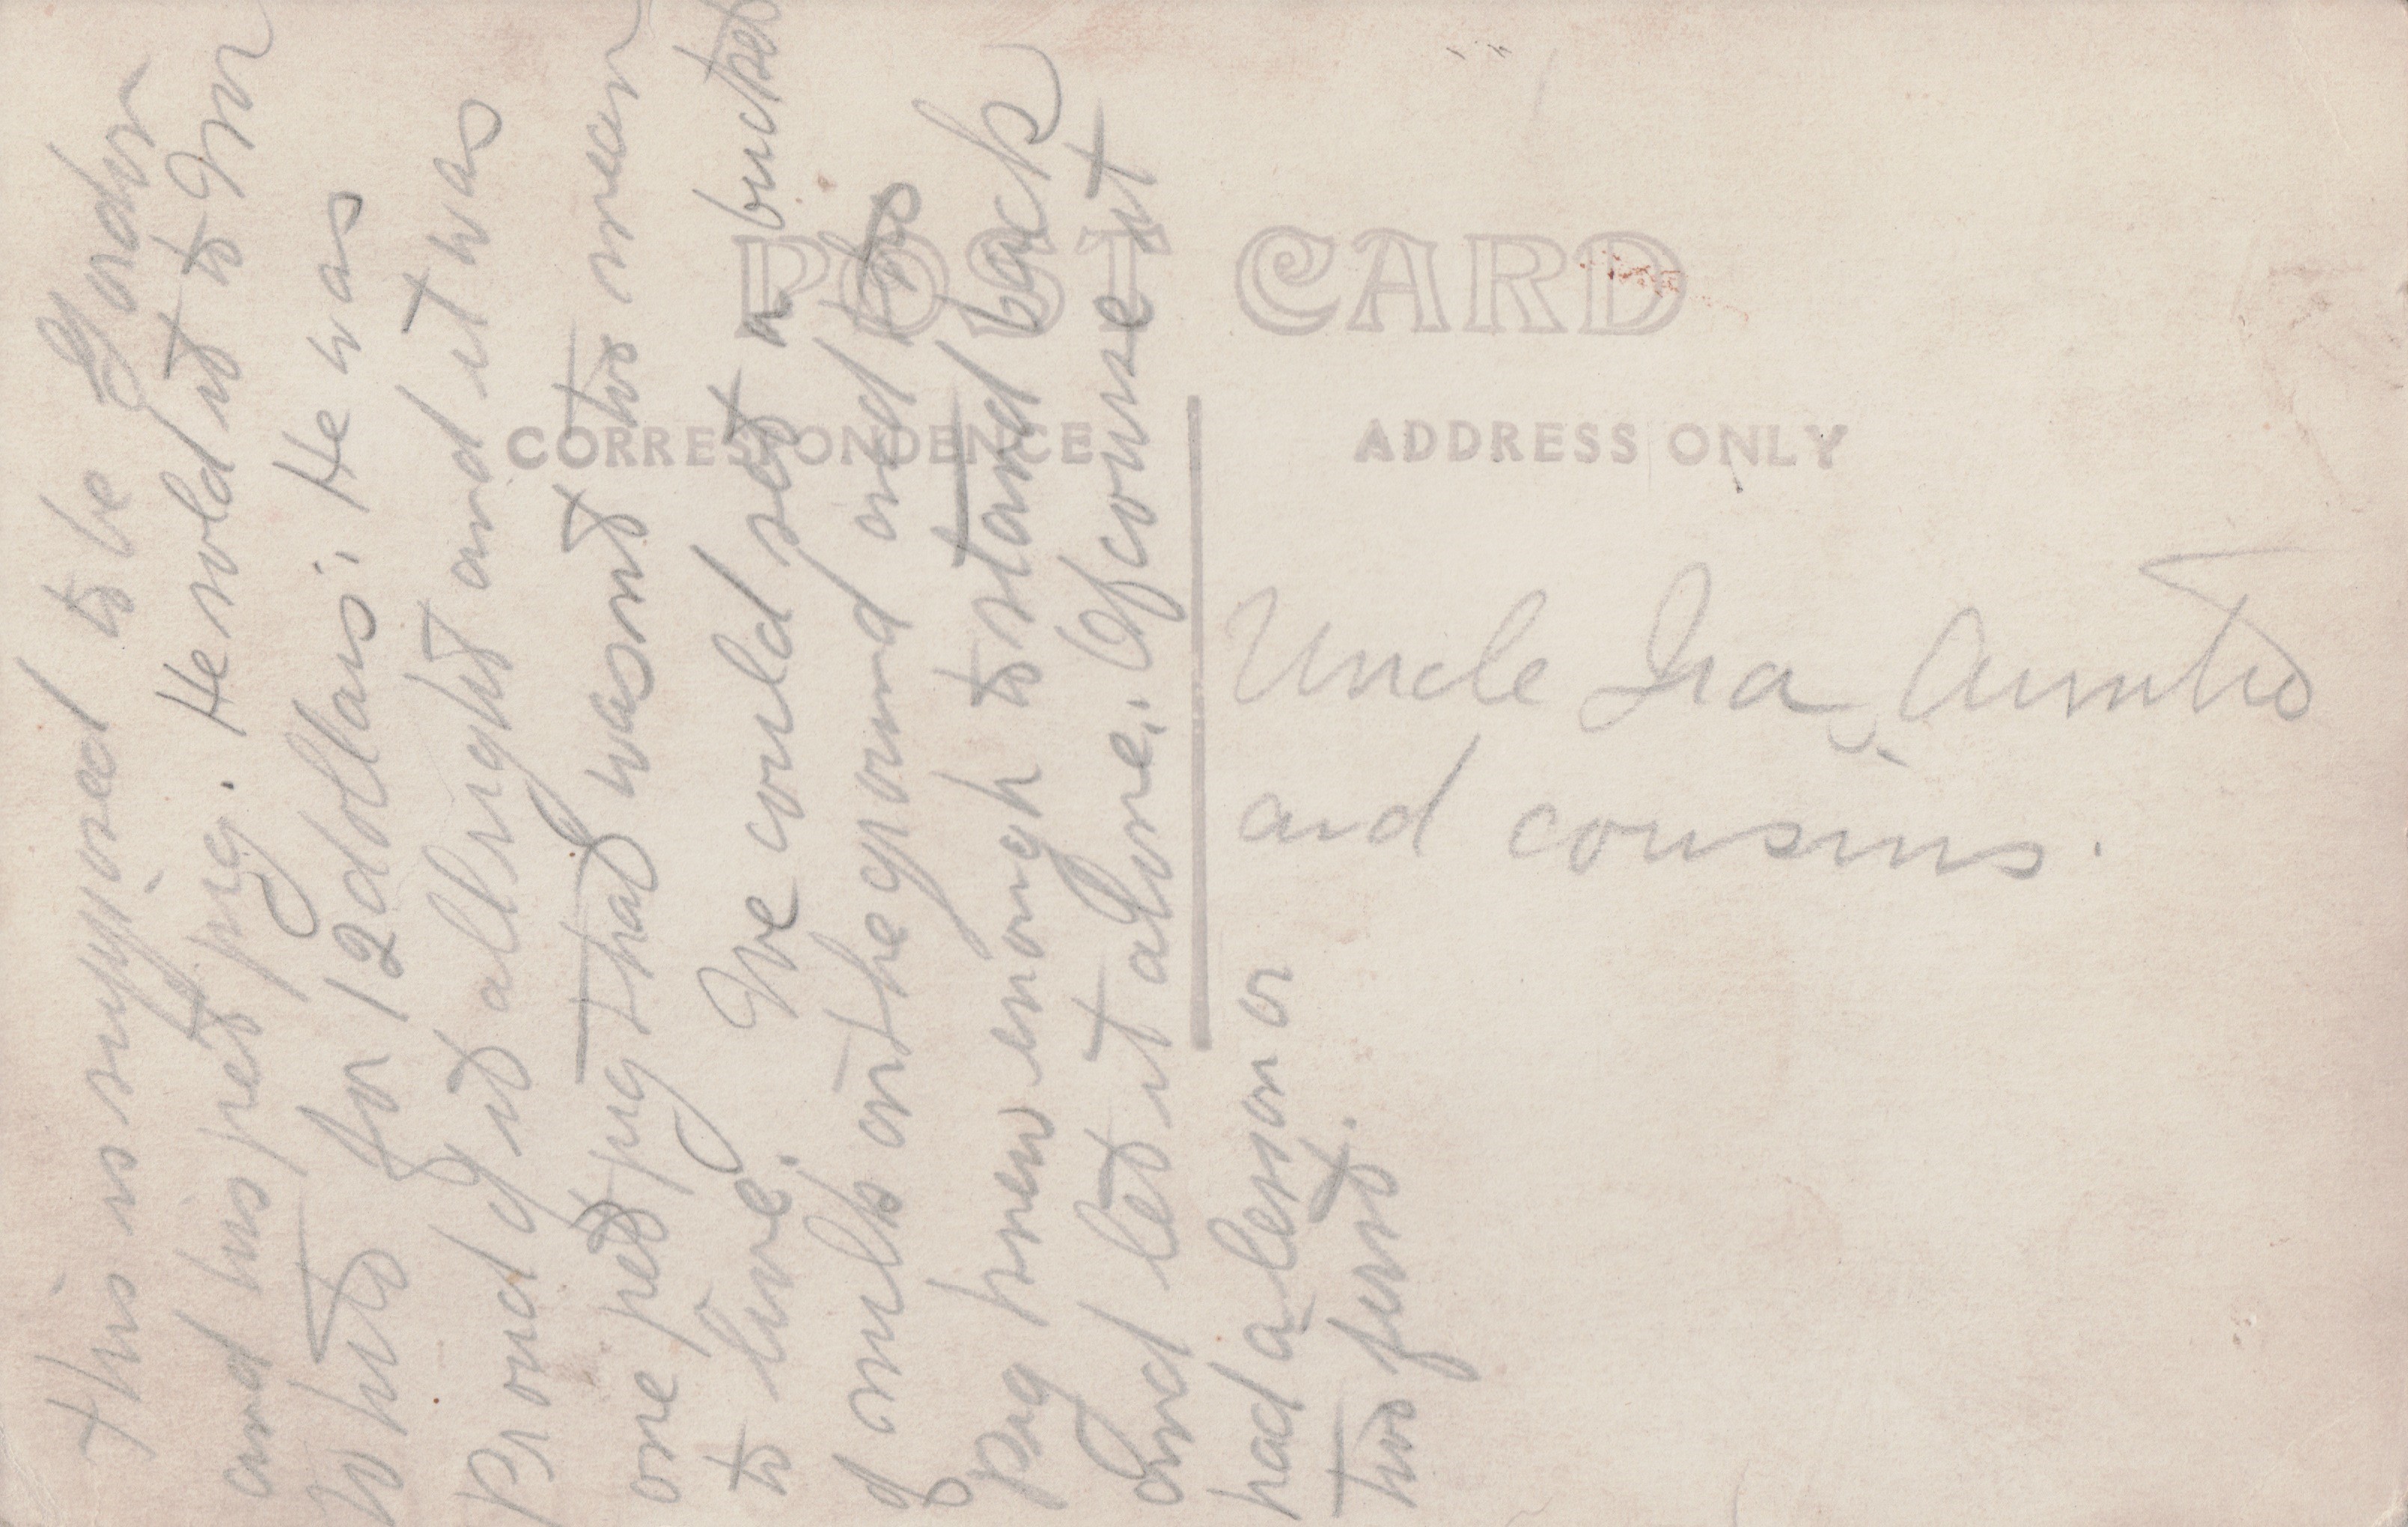 POST CARD
CORRESPONDENCE
ADDRESS ONLY
This is supposed to be Gordon
and his pet pig. He sold it to Mr
White for 12 dollars. He was
Proud of it allright and it was
one pet pig that wasnt too mean
to live. We could set a bucket
of milk on the ground and this
pig knew enough to stand back
and let it alone. Of course it
had a lesson or
two first.
Uncle Ira, Auntie
and cousins.